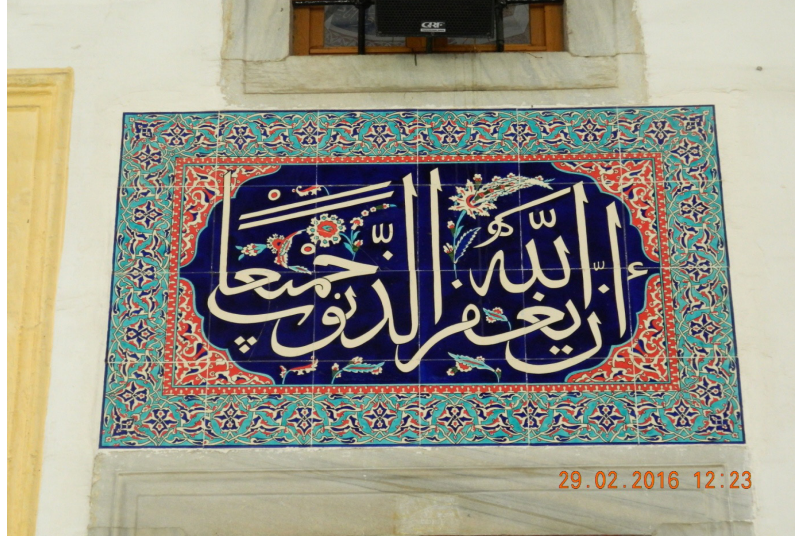 GRF
إن الله يغفر الذنوب جميعا
29.02.2016 12:23